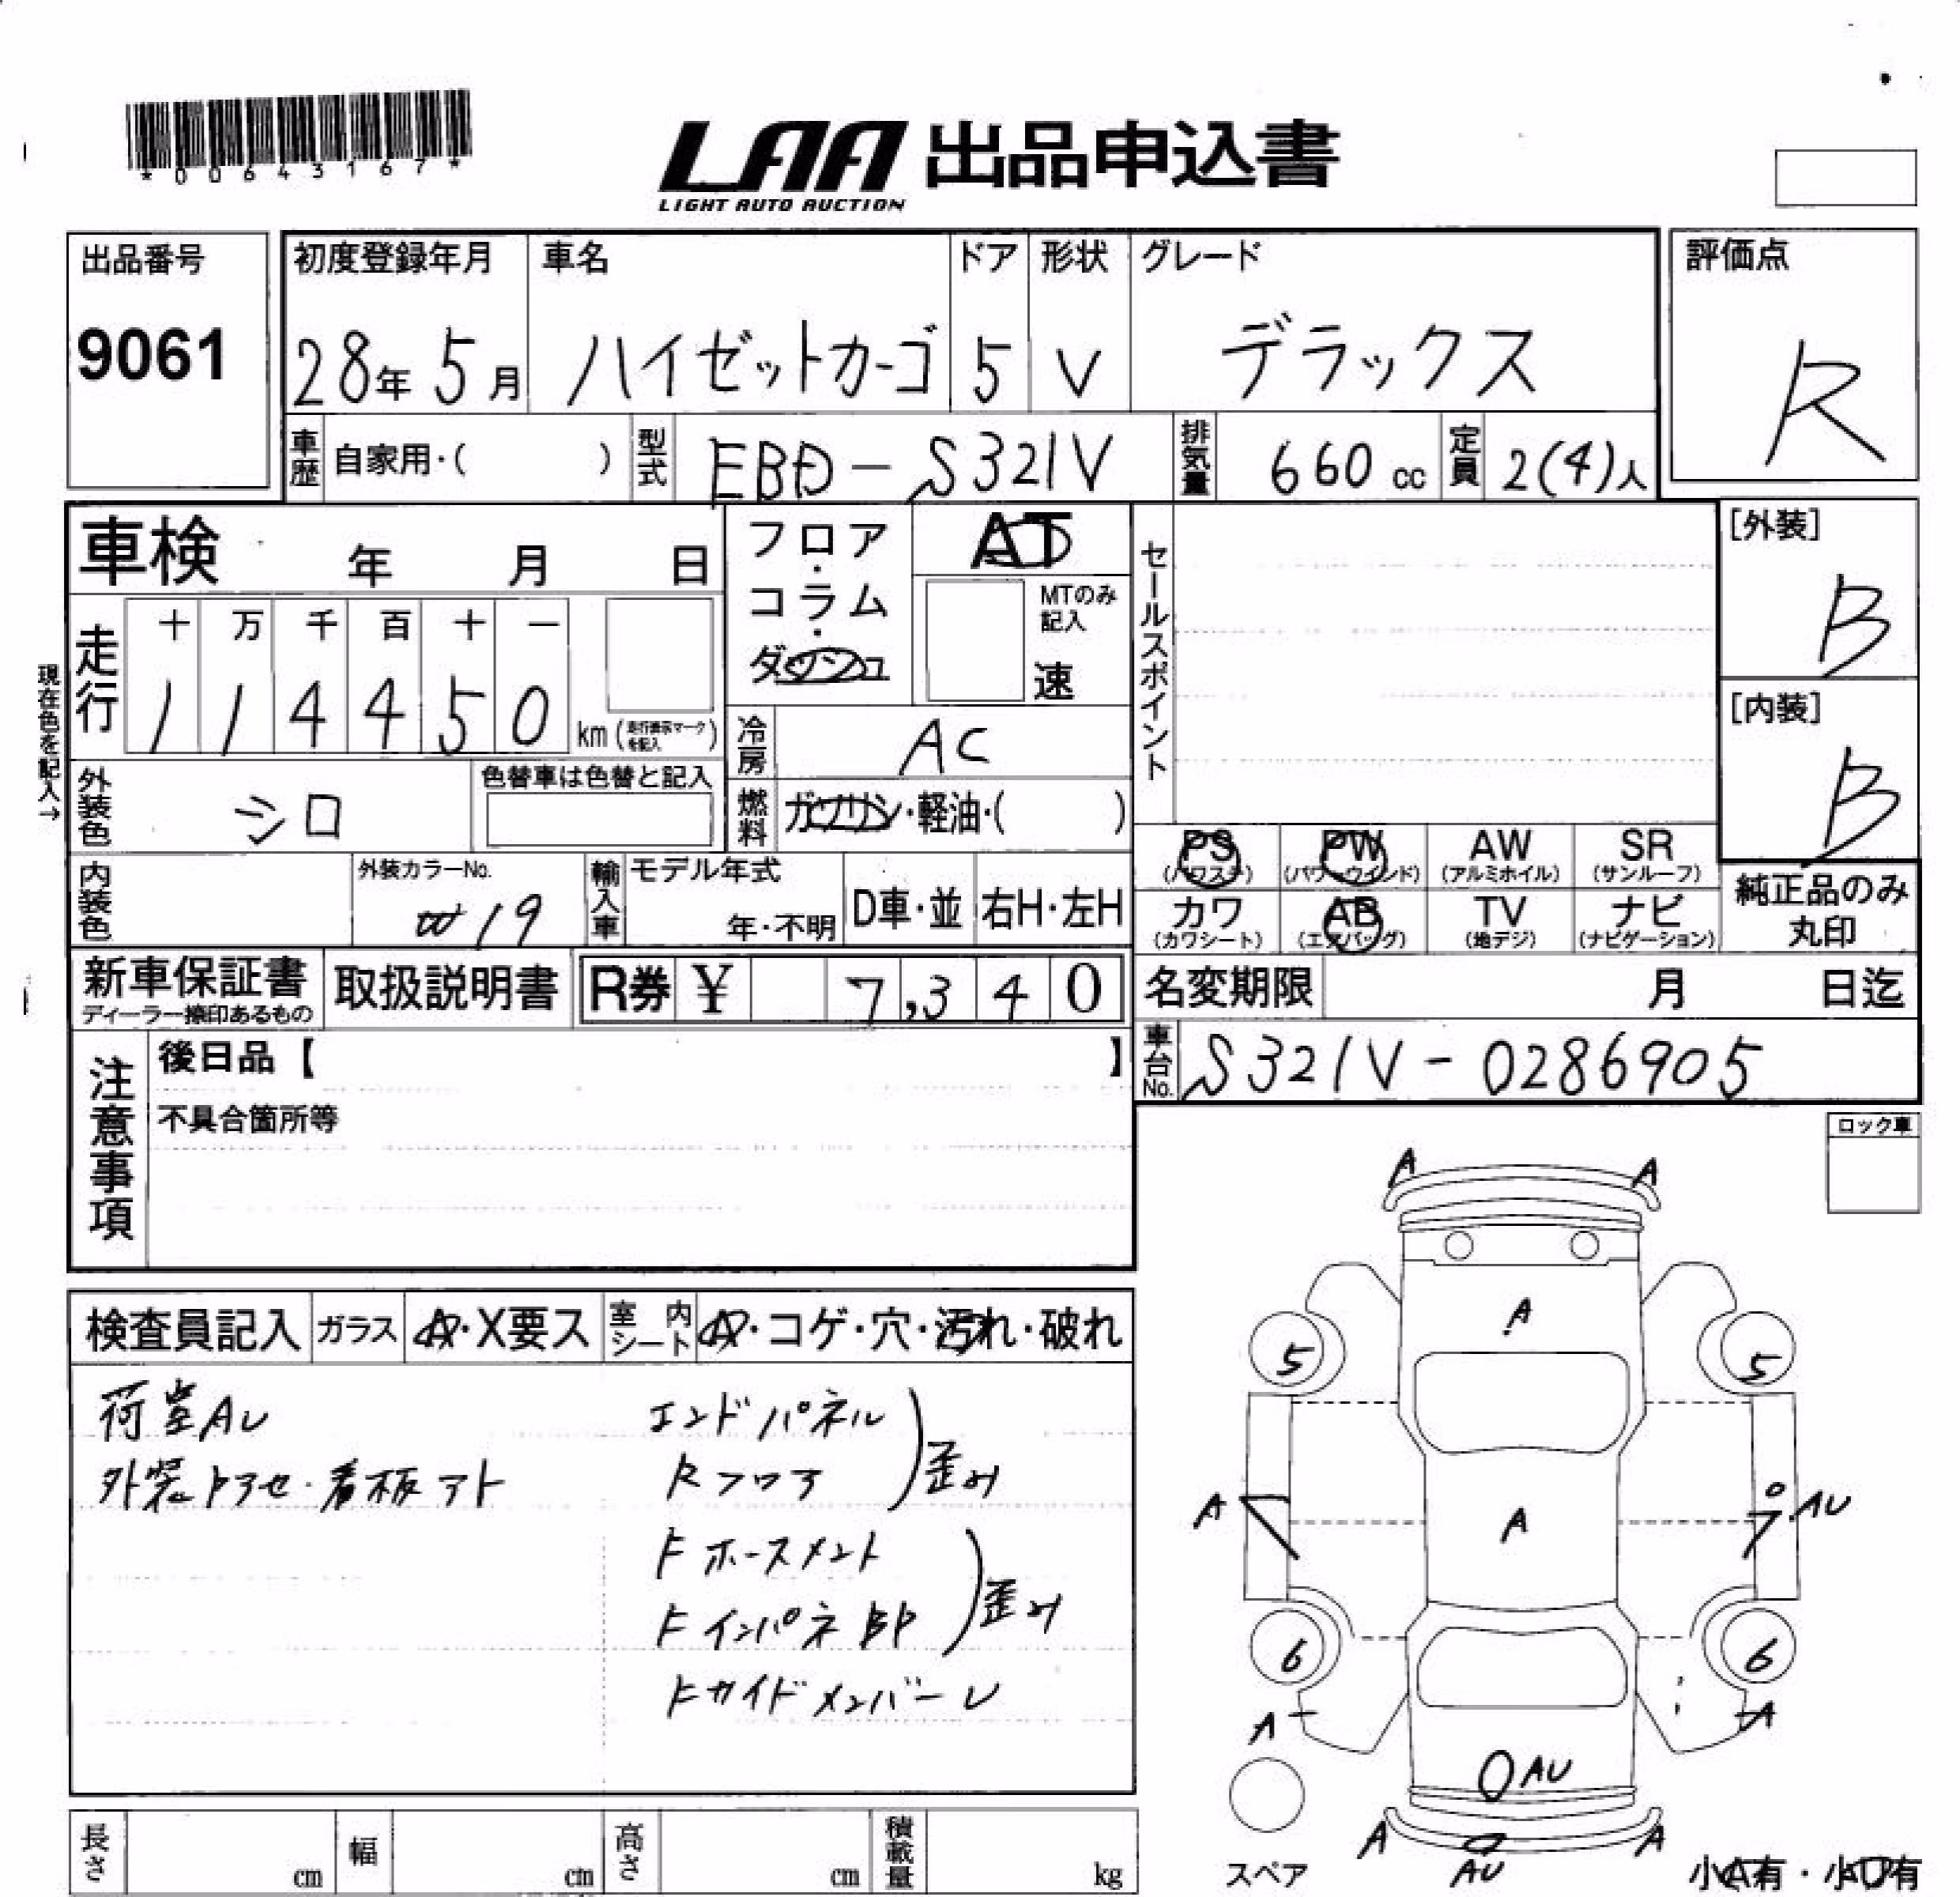 *00643167*
LAA 出品申込書
LIGHT AUTO AUCTION
出品番号
9061
初度登録年月
28年 5月
車名
ハイゼットカーゴ
ドア
5
形状
V
グレード
デラックス
評価点
R
車歴 自家用・( )
型式 EBD-S321V
排気量 660 cc
定員 2(4)人
車検 年 月 日
フロア・コラム・ダッシュ
AT
MTのみ記入
速
セールスポイント
[外装]
B
[内装]
B
現在色を記入→
走行
十 万 千 百 十 一
1 1 4 4 5 0 km
冷房 AC
外装色 シロ
色替車は色替と記入
燃料 ガソリン・軽油・( )
PS (パワステ)
PW (パワーウインド)
AW (アルミホイル)
SR (サンルーフ)
カワ (カワシート)
AB (エアバッグ)
TV (地デジ)
ナビ (ナビゲーション)
純正品のみ
丸印
内装色
外装カラーNo.
W19
輸入車
モデル年式
年・不明
D車・並
右H・左H
新車保証書
ディーラー捺印あるもの
取扱説明書
R券 ¥ 7,340
名変期限 月 日迄
車台No. S321V-0286905
注意事項
後日品【 】
不具合箇所等
ロック車
検査員記入
ガラス
A・X要ス
室内シート
A・コゲ・穴・汚れ・破れ
荷室AU
外装トアセ・看板アト
エンドパネル
Rフロア
歪み
Fホースメント
Fインパネ部
歪み
FサイドメンバーU
A A
A
5 5
A A AU
6 6
A A
AU
A AU A
スペア
小A有・小U有
長さ cm
幅 cm
高さ cm
積載量 kg